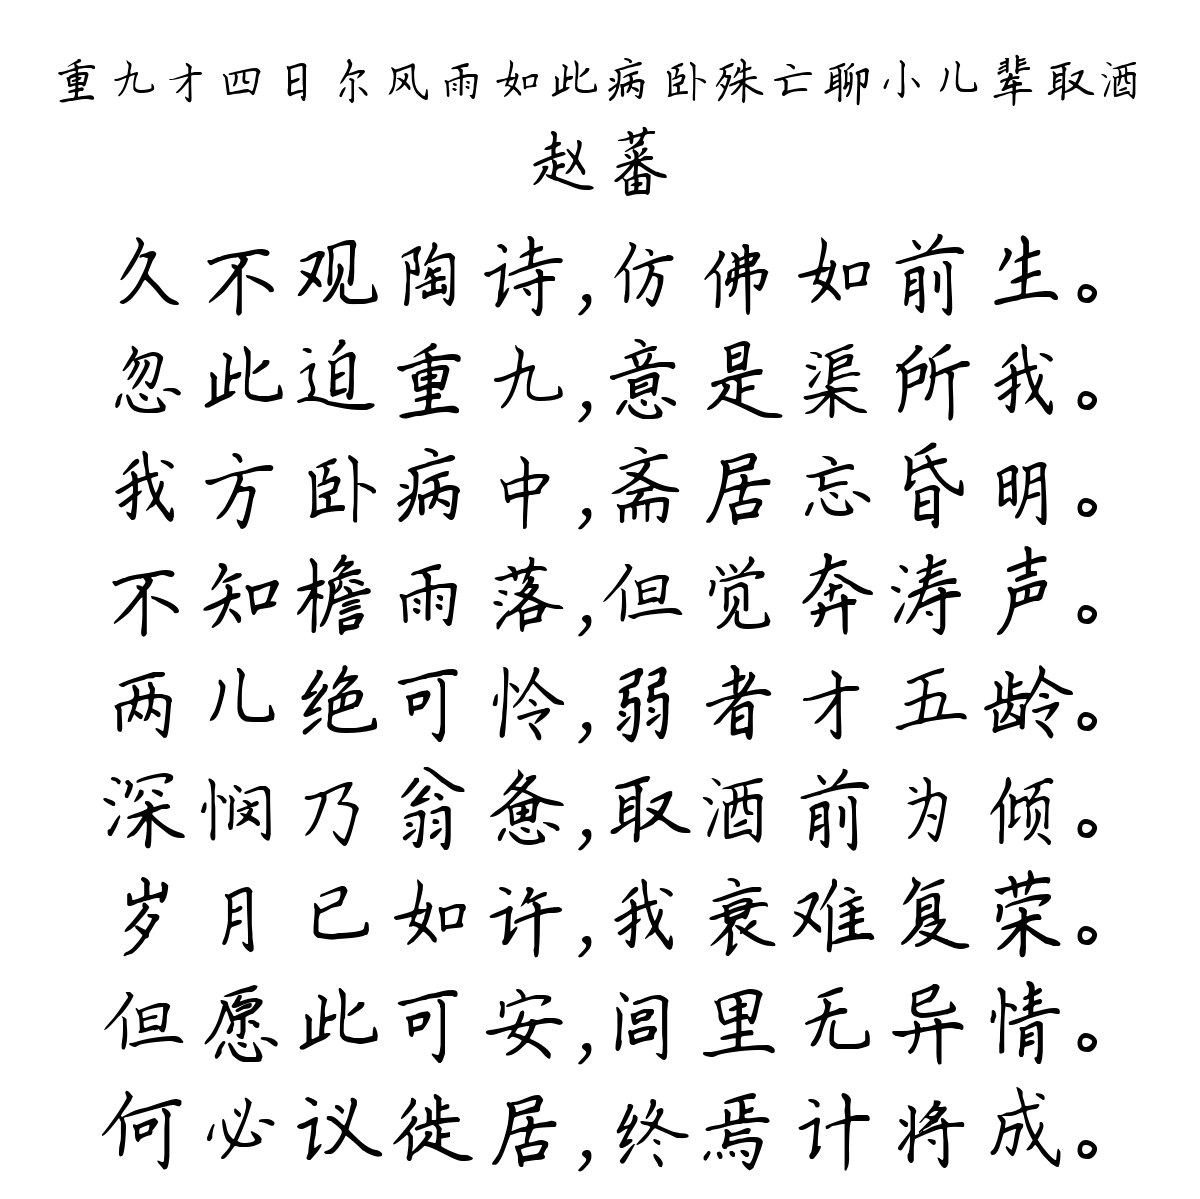 重九才四日尔风雨如此病卧殊亡聊小儿辈取酒
赵蕃
久不观陶诗,仿佛如前生。
忽此迫重九,意是渠所我。
我方卧病中,斋居忘昏明。
不知檐雨落,但觉奔涛声。
两儿绝可怜,弱者才五龄。
深悯乃翁惫,取酒前为倾。
岁月已如许,我衰难复荣。
但愿此可安,闾里无异情。
何必议徙居,终焉计将成。